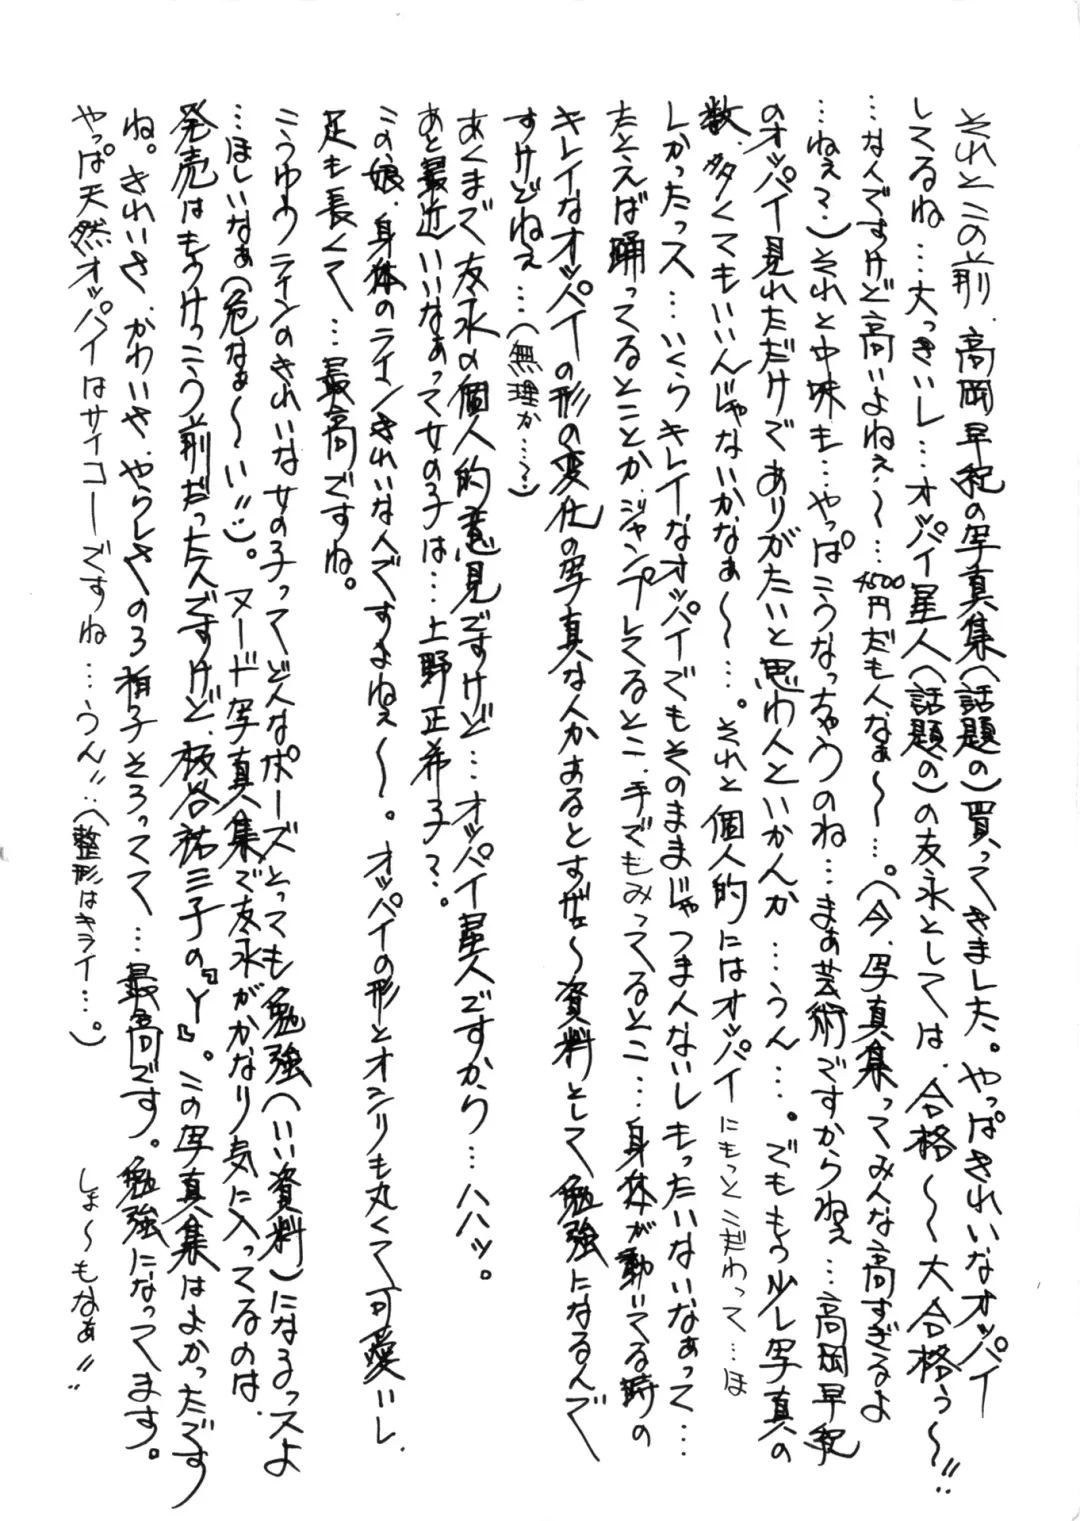 それとこの前、高岡早紀の写真集(話題の)買ってきました。やっぱきれいなオッパイ
してるね…大っきいし…オッパイ星人(話題の)の友永としては、合格〜〜大合格ぅ〜!!
…なんですけど高いよねぇ〜〜…4500円だもんなぁ〜〜…。(今、写真集ってみんな高すぎるよ
…ねぇ?)それと中味も…やっぱこうなっちゃうのね…まぁ芸術ですからねぇ…高岡早紀
のオッパイ見れただけでありがたいと思わんといかんか…うん…。でももう少し写真の
数、多くてもいいんじゃないかなぁ〜〜…。それと個人的にはオッパイにもっとこだわって…ほ
しかったっス…いくらキレイなオッパイでもそのままじゃつまんないしもったいないなぁって…
たとえば踊ってるとことか、ジャンプしてるとこ、手でもみってるとこ…身体が動いてる時の
キレイなオッパイの形の変化の写真なんかあるとすげェ〜資料として勉強になるんで
すけどねぇ…(無理か…?)
あくまで友永の個人的意見ですけど…オッパイ星人ですから…ハハッ。
あと最近いいなぁって女の子は…上野正希子?。
この娘、身体のラインきれいな人ですよねぇ〜。オッパイの形とオシリも丸くて可愛いし、
足も長くて…最高ですね。
こうゆうラインのきれいな女の子ってどんなポーズとっても勉強(いい資料)になるっスよ
…ほしいなぁ(危なぁ〜〜い!!)。ヌード写真集で友永がかなり気に入ってるのは、
発売はもうけっこう前だったんですけど、板谷祐三子の『Y』。この写真集はよかったです
ね。きれいさ、かわいさ、やらしさの3拍子そろってて…最高です。勉強になってます。
やっぱ天然オッパイはサイコーですね…うん!!…(整形はキライ…。) しょ〜もなぁ!!